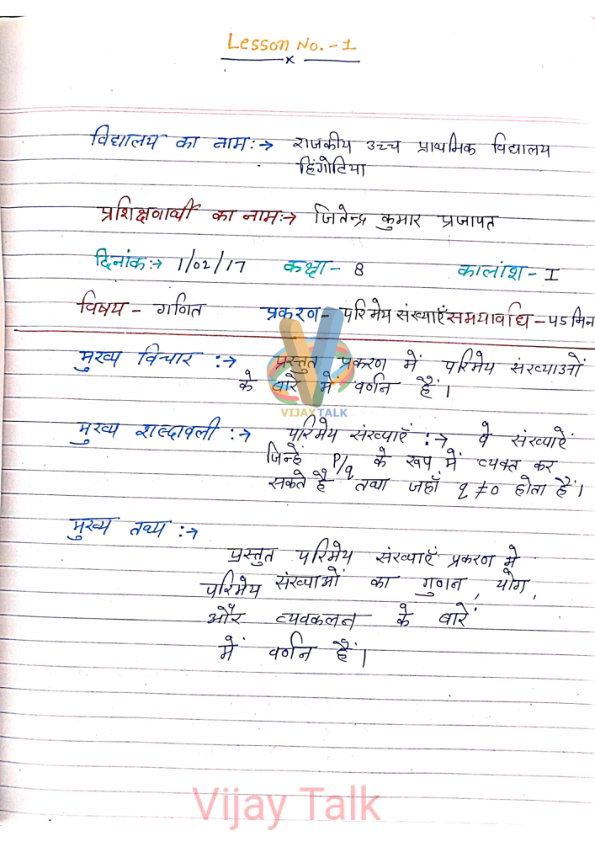 Lesson No. - 1
x
विद्यालय का नाम :→ राजकीय उच्च प्राथमिक विद्यालय
हिंगोटिया
प्रशिक्षणार्थी का नाम :→ जितेन्द्र कुमार प्रजापत
दिनांक :→ 1/02/17 कक्षा - 8 कालांश - I
विषय - गणित प्रकरण - परिमेय संख्याएँ समयावधि - 45 मिन
मुख्य विचार :→ प्रस्तुत प्रकरण में परिमेय संख्याओं
के बारे में वर्णन हैं।
VIJAY TALK
मुख्य शब्दावली :→ परिमेय संख्याएँ :→ वे संख्याऐं
जिन्हें P/q के रूप में व्यक्त कर
सकते है तथा जहाँ q ≠ 0 होता हैं।
मुख्य तथ्य :→
प्रस्तुत परिमेय संख्याएँ प्रकरण में
परिमेय संख्याओं का गुणन, योग,
और व्यवकलन के बारें
में वर्णन हैं।
Vijay Talk